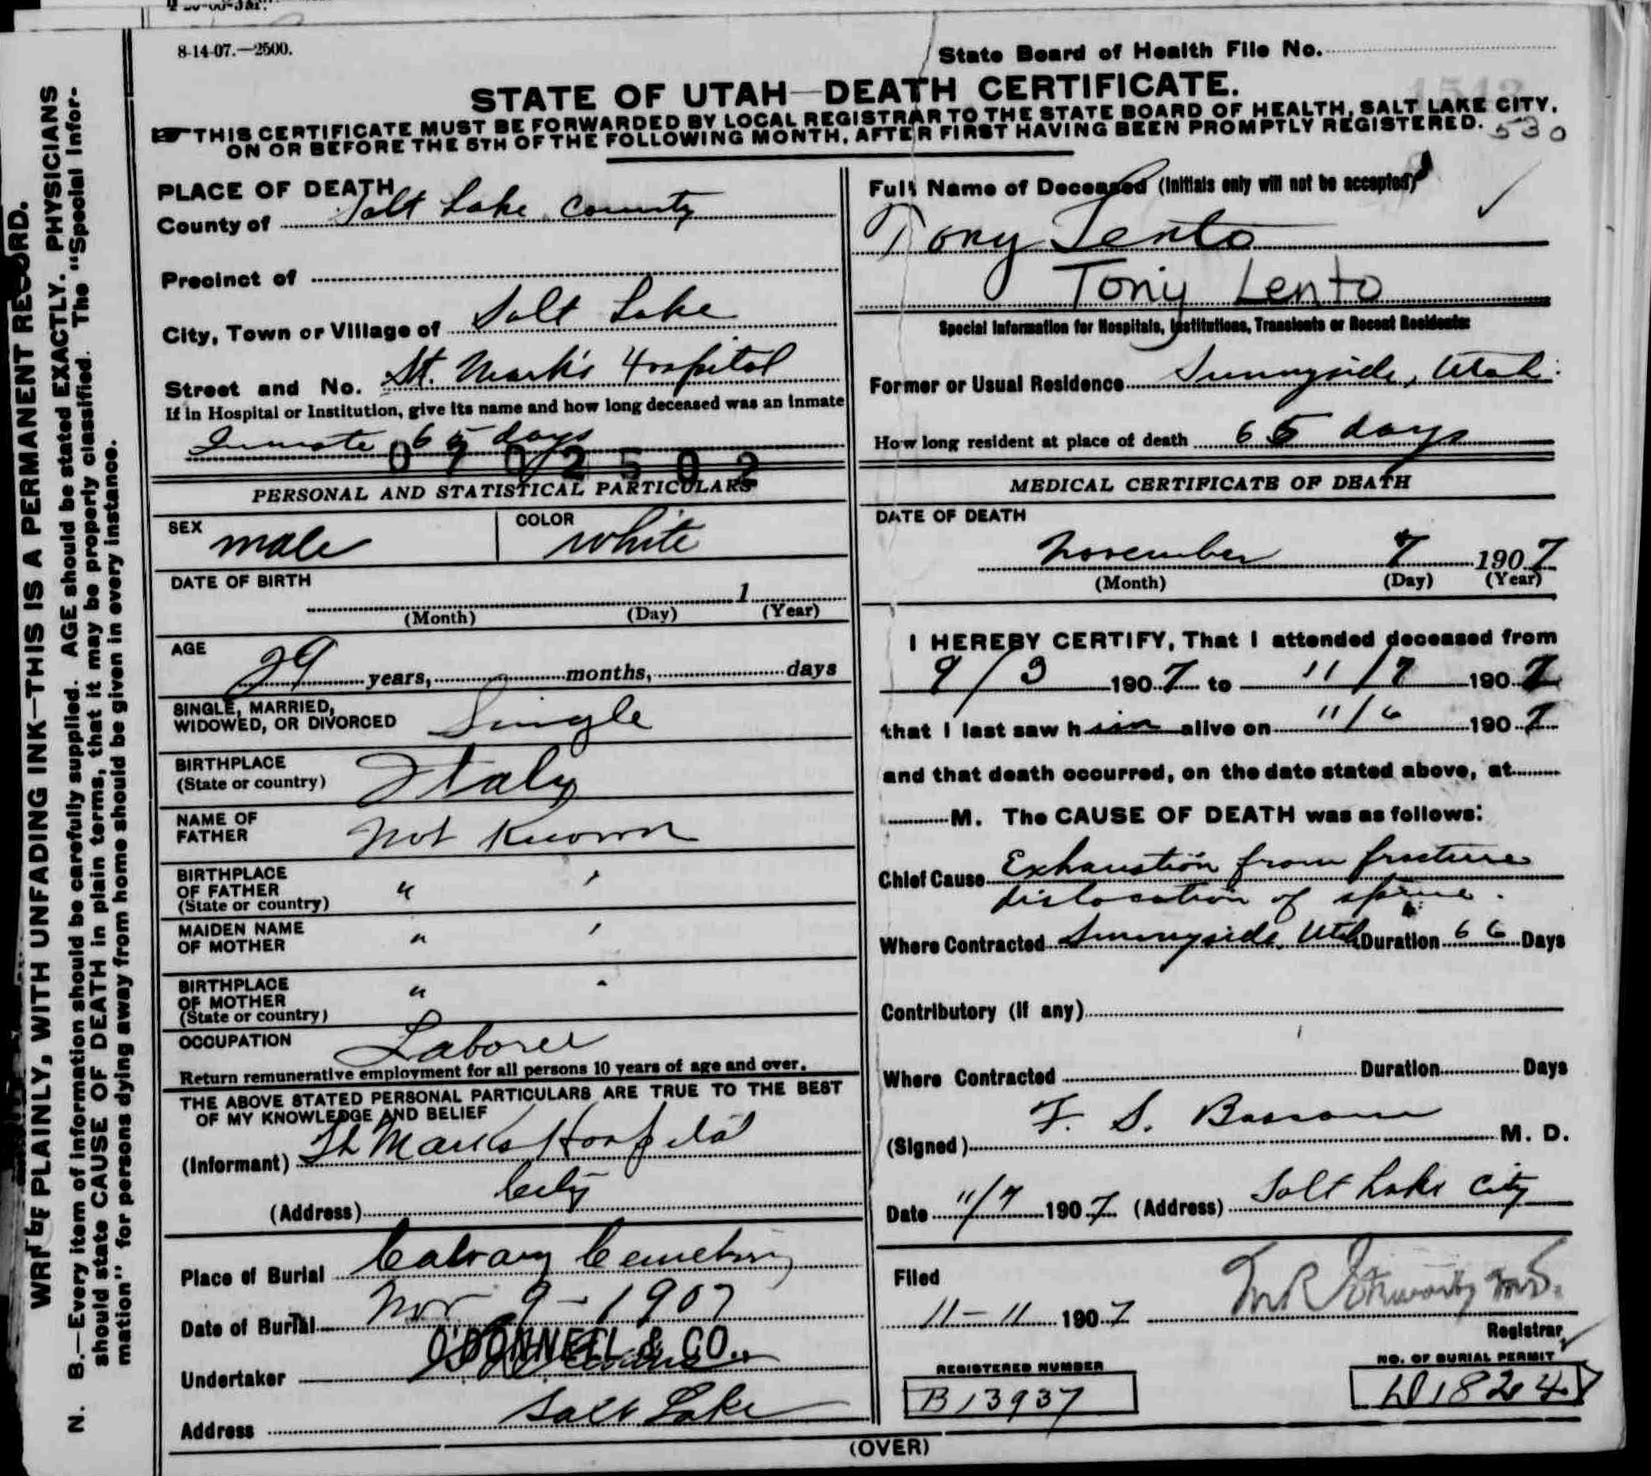 8-14-07.—2500.
State Board of Health File No.
STATE OF UTAH—DEATH CERTIFICATE.
THIS CERTIFICATE MUST BE FORWARDED BY LOCAL REGISTRAR TO THE STATE BOARD OF HEALTH, SALT LAKE CITY,
ON OR BEFORE THE 5TH OF THE FOLLOWING MONTH, AFTER FIRST HAVING BEEN PROMPTLY REGISTERED.
530
WRITE PLAINLY, WITH UNFADING INK—THIS IS A PERMANENT RECORD.
N. B.—Every item of information should be carefully supplied. AGE should be stated EXACTLY. PHYSICIANS
should state CAUSE OF DEATH in plain terms, that it may be properly classified. The "Special Infor-
mation" for persons dying away from home should be given in every instance.
PLACE OF DEATH
County of Salt Lake County
Precinct of
City, Town or Village of Salt Lake
Street and No. St. Mark's Hospital
If in Hospital or Institution, give its name and how long deceased was an inmate
Inmate 65 days
0702502
PERSONAL AND STATISTICAL PARTICULARS
SEX male COLOR white
DATE OF BIRTH 1
(Month) (Day) (Year)
AGE 29 years, months, days
SINGLE, MARRIED,
WIDOWED, OR DIVORCED Single
BIRTHPLACE
(State or country) Italy
NAME OF
FATHER Not Known
BIRTHPLACE
OF FATHER " "
(State or country)
MAIDEN NAME
OF MOTHER " "
BIRTHPLACE
OF MOTHER " "
(State or country)
OCCUPATION Laborer
Return remunerative employment for all persons 10 years of age and over.
THE ABOVE STATED PERSONAL PARTICULARS ARE TRUE TO THE BEST
OF MY KNOWLEDGE AND BELIEF
(Informant) St Marks Hospital
(Address) City
Place of Burial Calvary Cemetery
Date of Burial Nov 9 - 1907
O'DONNELL & CO.,
Undertaker
Address Salt Lake
Full Name of Deceased (Initials only will not be accepted)
Tony Lento
Tony Lento
Special Information for Hospitals, Institutions, Transients or Recent Residents:
Former or Usual Residence Sunnyside, Utah.
How long resident at place of death 65 days
MEDICAL CERTIFICATE OF DEATH
DATE OF DEATH
November 7 1907
(Month) (Day) (Year)
I HEREBY CERTIFY, That I attended deceased from
9/3 1907 to 11/7 1907
that I last saw him alive on 11/6 1907
and that death occurred, on the date stated above, at
M. The CAUSE OF DEATH was as follows:
Chief Cause Exhaustion from fracture
dislocation of spine.
Where Contracted Sunnyside, Utah Duration 66 Days
Contributory (if any)
Where Contracted Duration Days
(Signed) F. S. Bascom M. D.
Date 11/7 1907 (Address) Salt Lake City
Filed
11-11 1907
Registrar
REGISTERED NUMBER
B13937
NO. OF BURIAL PERMIT
D1824
(OVER)